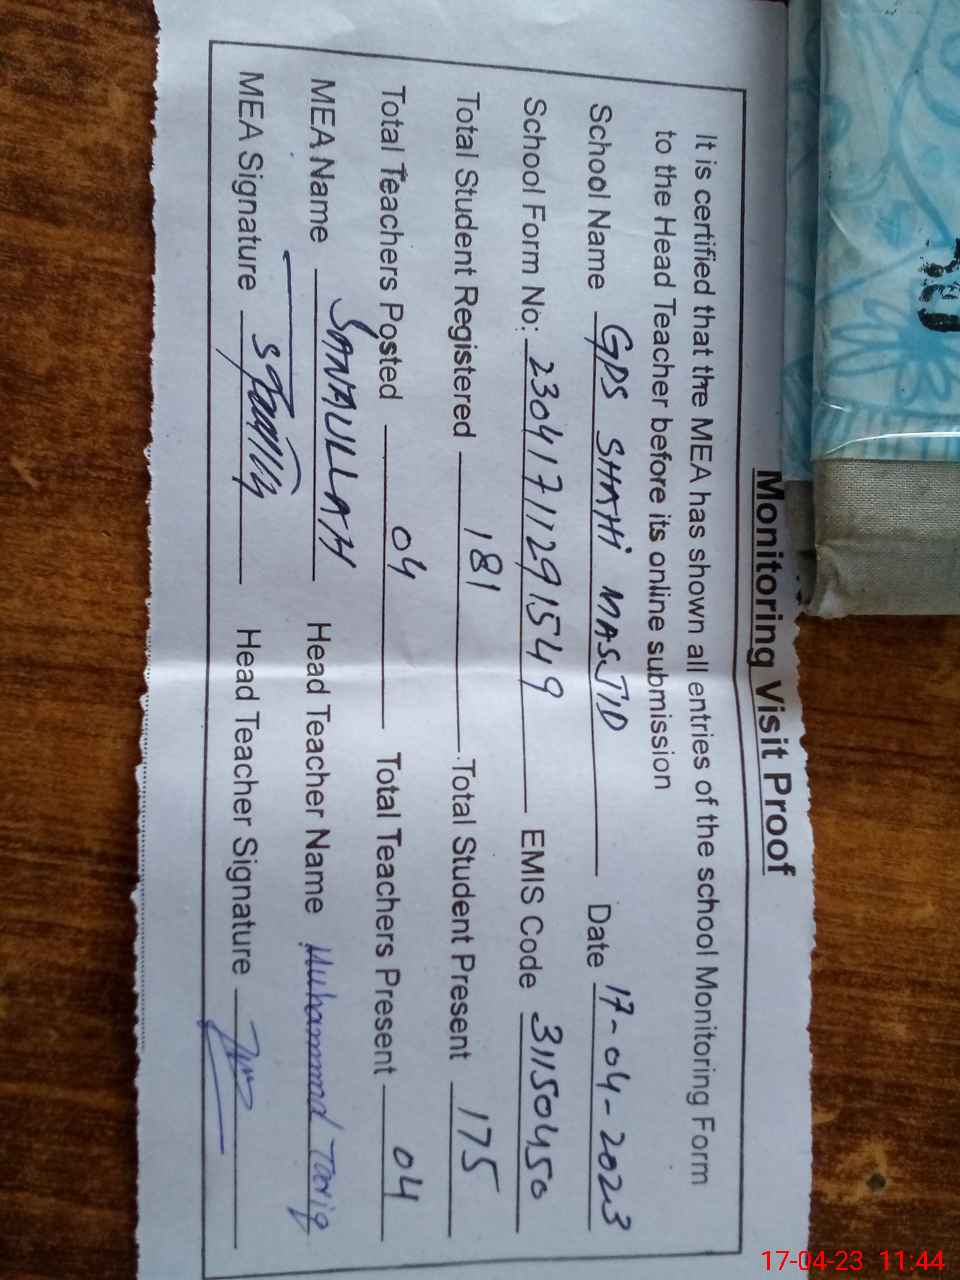 Monitoring Visit Proof
It is certified that the MEA has shown all entries of the school Monitoring Form
to the Head Teacher before its online submission
School Name GPS SHAHI MASJID Date 17-04-2023
School Form No: 2304171129 1549 EMIS Code 31150450
Total Student Registered 181 Total Student Present 175
Total Teachers Posted 04 Total Teachers Present 04
MEA Name SANAULLAH Head Teacher Name Muhammad Tariq
MEA Signature Head Teacher Signature
17-04-23 11:44